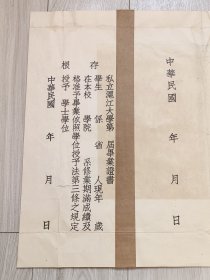 中華民國　年　月　日
私立淡江大學第　屆畢業證書
存　學生　係　省　人現年　歲
在本校　學院　系修業期滿成績及
格准予畢業依照學位授予法第三條之規定
根　授予　學士學位
中華民國　年　月　日